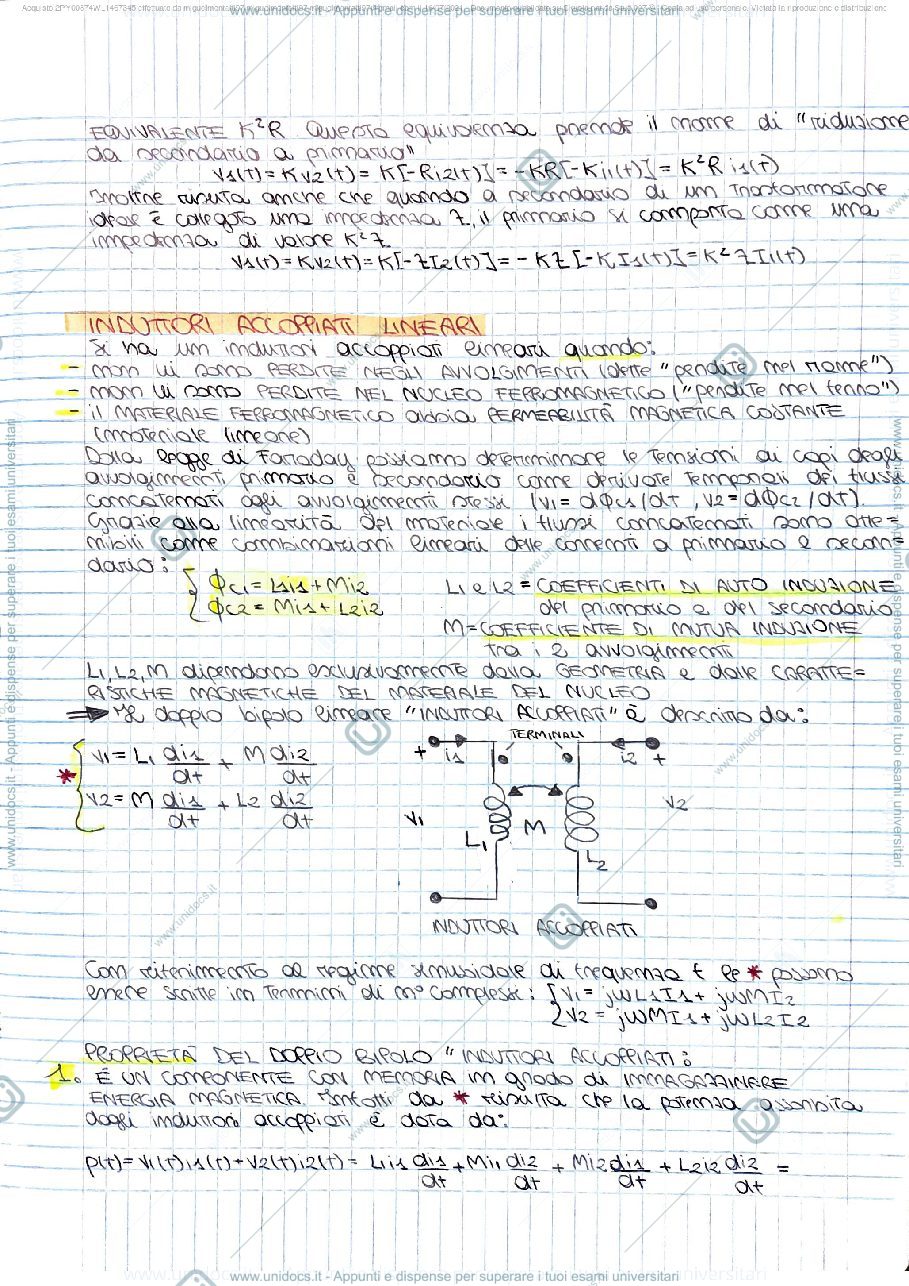 www.unidocs.it - Appunti e dispense per superare i tuoi esami universitari
EQUIVALENTE K²R Questa equivalenza prende il nome di "riduzione
da secondario a primario"
V1(t) = K V2(t) = K[-Ri2(t)] = -KR[-Ki1(t)] = K²R i1(t)
Inoltre risulta anche che quando a secondario di un trasformatore
ideale è collegata una impedenza Z, il primario si comporta come una
impedenza di valore K²Z
V1(t) = KV2(t) = K[-ZI2(t)] = -KZ[-KI1(t)] = K²ZI1(t)
INDUTTORI ACCOPPIATI LINEARI
Si ha un induttori accoppiati lineari quando:
- non vi sono PERDITE NEGLI AVVOLGIMENTI (dette "perdite nel rame")
- non vi sono PERDITE NEL NUCLEO FERROMAGNETICO ("perdite nel ferro")
- il MATERIALE FERROMAGNETICO abbia PERMEABILITÀ MAGNETICA COSTANTE
(materiale lineare)
Dalla legge di Faraday possiamo determinare le tensioni ai capi degli
avvolgimenti primario e secondario come derivate temporali dei flussi
concatenati agli avvolgimenti stessi (V1 = dΦc1/dt, V2 = dΦc2/dt)
Grazie alla linearità del materiale i flussi concatenati sono otte=
nibili come combinazioni lineari delle correnti a primario e secon=
dario: { Φc1 = L1i1 + Mi2 L1 e L2 = COEFFICIENTI DI AUTO INDUZIONE
Φc2 = Mi1 + L2i2 del primario e del secondario
M = COEFFICIENTE DI MUTUA INDUZIONE
tra i 2 avvolgimenti
L1, L2, M dipendono esclusivamente dalla GEOMETRIA e dalle CARATTE=
RISTICHE MAGNETICHE DEL MATERIALE DEL NUCLEO
⇒ Il doppio bipolo lineare "INDUTTORI ACCOPPIATI" è descritto da:
* { V1 = L1 di1/dt + M di2/dt
V2 = M di1/dt + L2 di2/dt
TERMINALI
+ i1 i2 +
V1 L1 M L2 V2
INDUTTORI ACCOPPIATI
Con riferimento al regime sinusoidale di frequenza f le * possono
essere scritte in termini di n° complessi: { V1 = jωL1I1 + jωMI2
V2 = jωMI1 + jωL2I2
PROPRIETÀ DEL DOPPIO BIPOLO "INDUTTORI ACCOPPIATI:
1. È UN COMPONENTE CON MEMORIA in grado di IMMAGAZZINARE
ENERGIA MAGNETICA. Infatti da * risulta che la potenza assorbita
dagli induttori accoppiati è data da:
p(t) = V1(t)i1(t) + V2(t)i2(t) = L1i1 di1/dt + Mi1 di2/dt + Mi2 di1/dt + L2i2 di2/dt =
www.unidocs.it - Appunti e dispense per superare i tuoi esami universitari